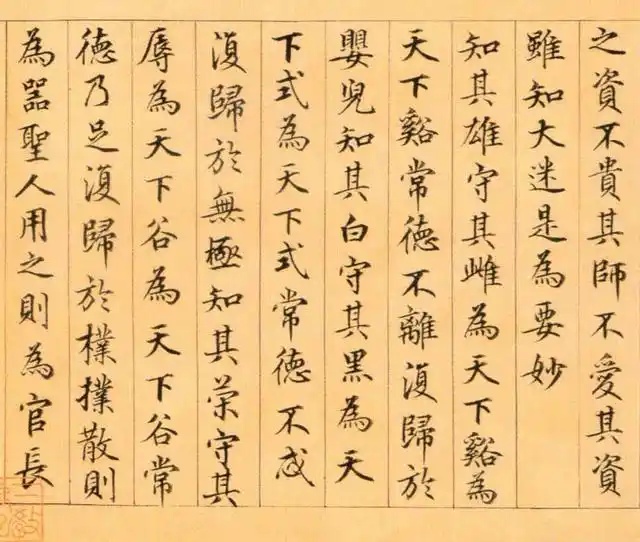 之資不貴其師不愛其資
雖知大迷是為要妙
知其雄守其雌為天下谿為
天下谿常德不離復歸於
嬰兒知其白守其黑為天
下式為天下式常德不忒
復歸於無極知其榮守其
辱為天下谷為天下谷常
德乃足復歸於樸撲散則
為器聖人用之則為官長